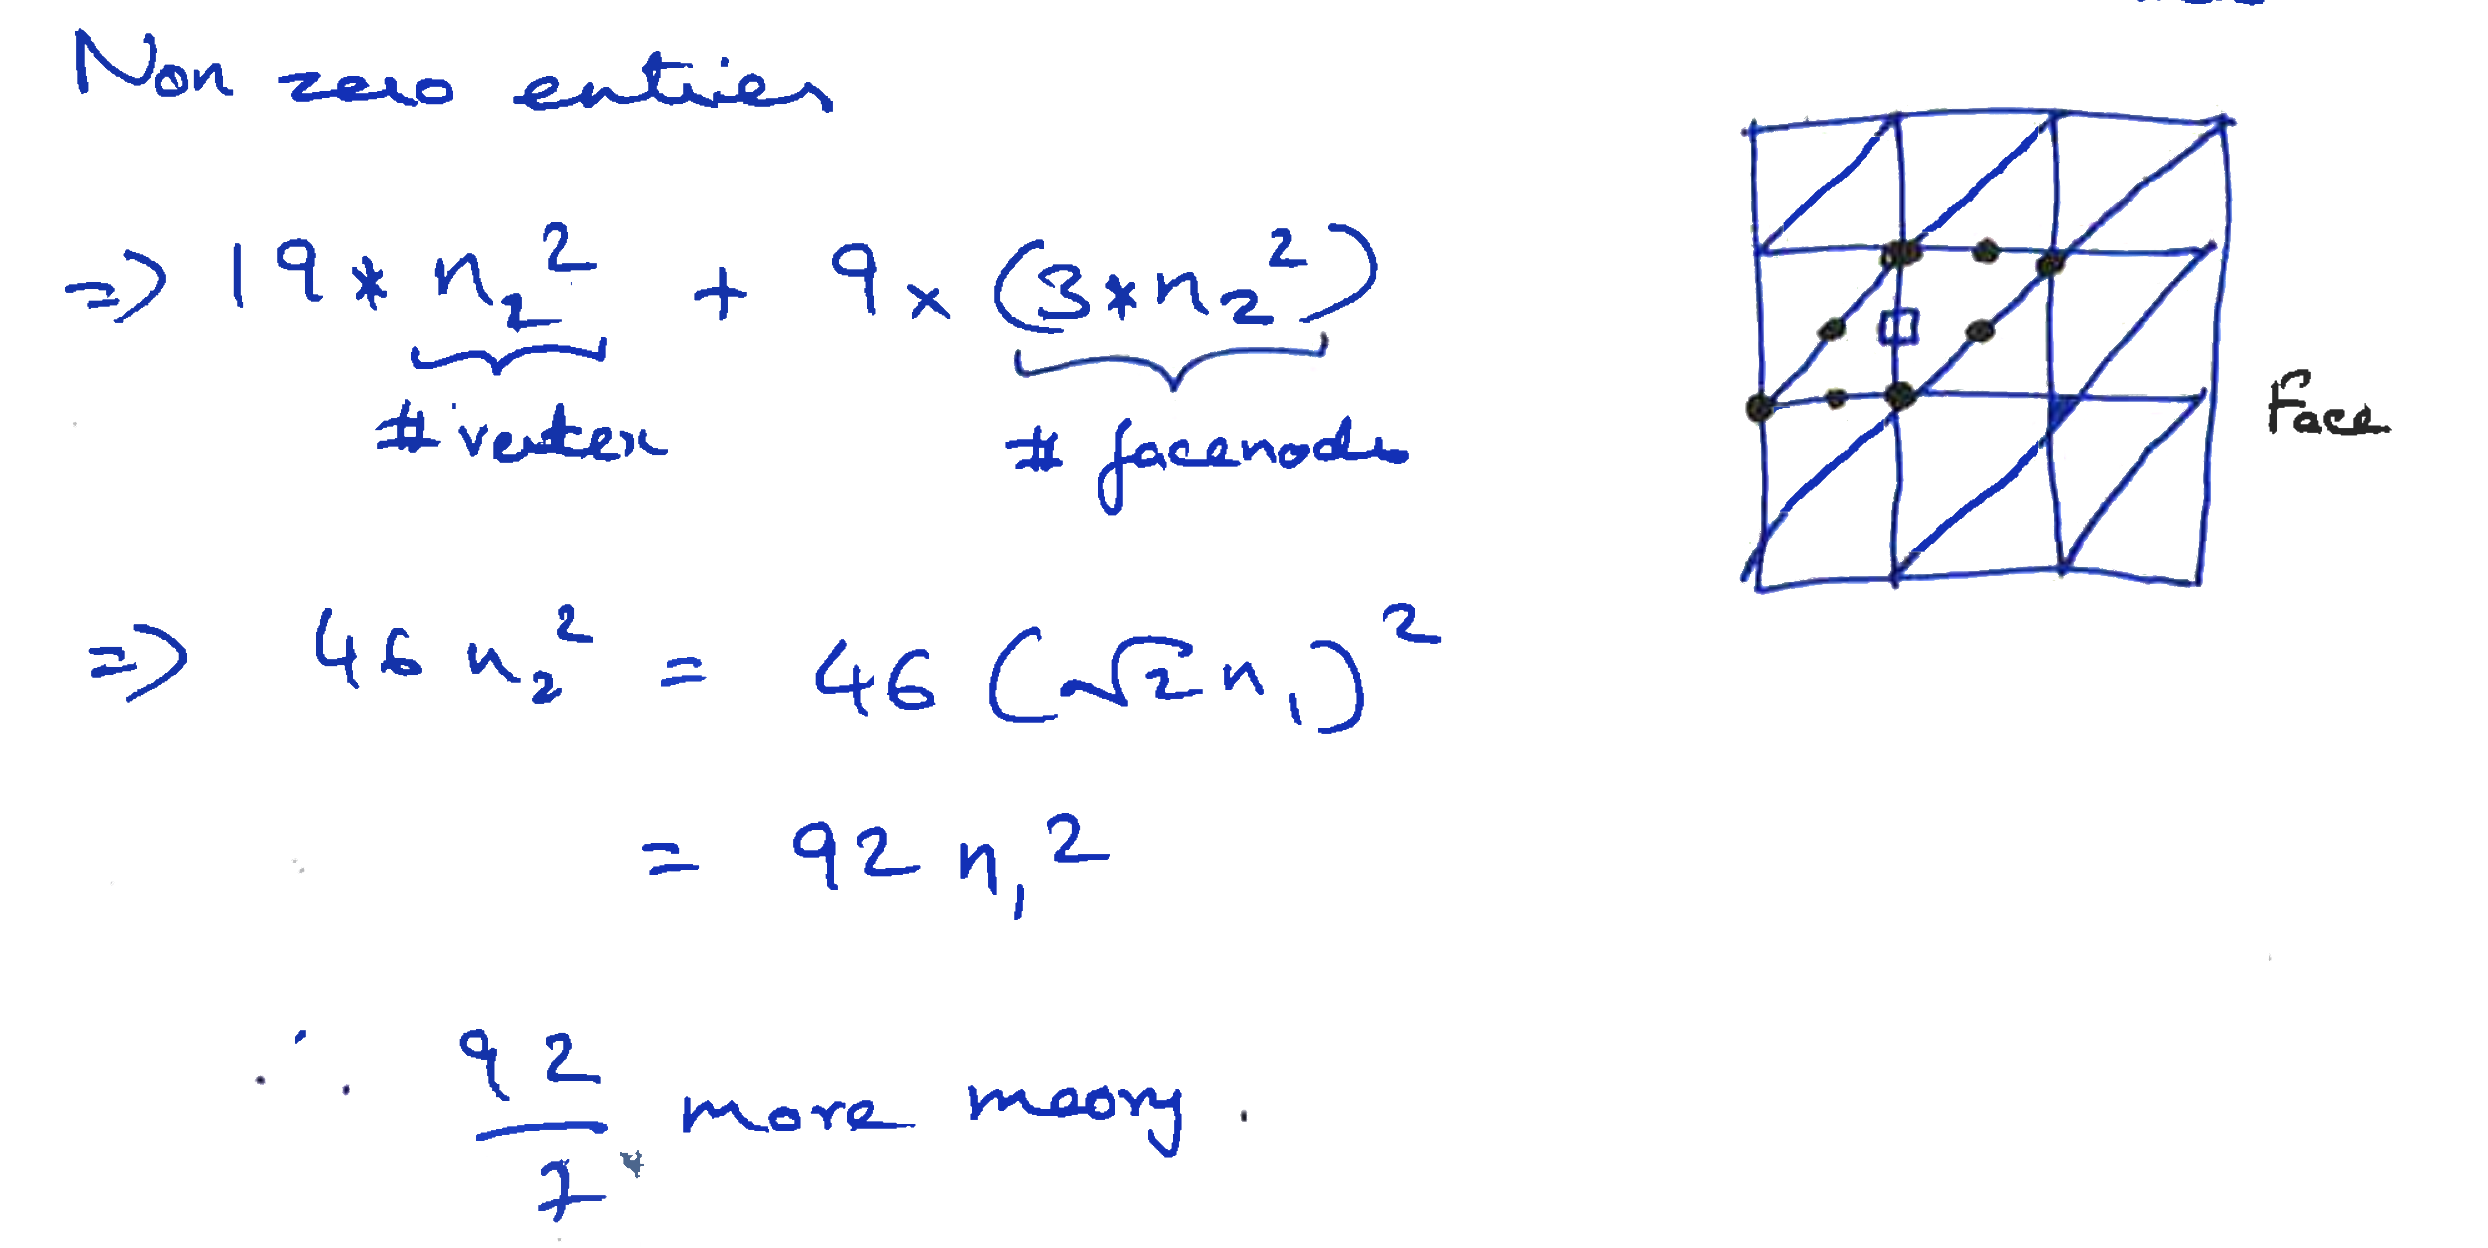 Non zero entries
=> 19 * n₂² + 9 × (3 * n₂²)
# vertex # facenodes
Face
=> 46 n₂² = 46 (√2 n₁)²
= 92 n₁²
∴ 92/7 more meory.